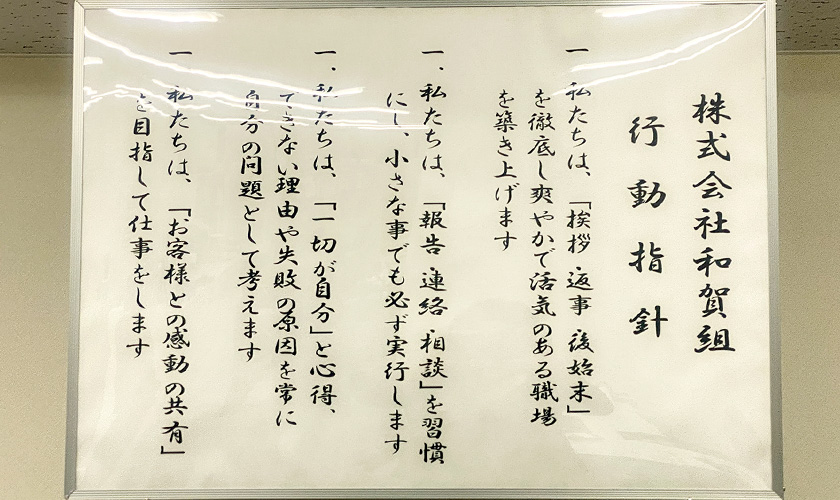 株式会社和賀組
行動指針
一 私たちは、「挨拶 返事 後始末」
を徹底し爽やかで活気のある職場
を築き上げます
一、私たちは、「報告 連絡 相談」を習慣
にし、小さな事でも必ず実行します
一、私たちは、「一切が自分」と心得、
できない理由や失敗の原因を常に
自分の問題として考えます
一 私たちは、「お客様との感動の共有」
を目指して仕事をします